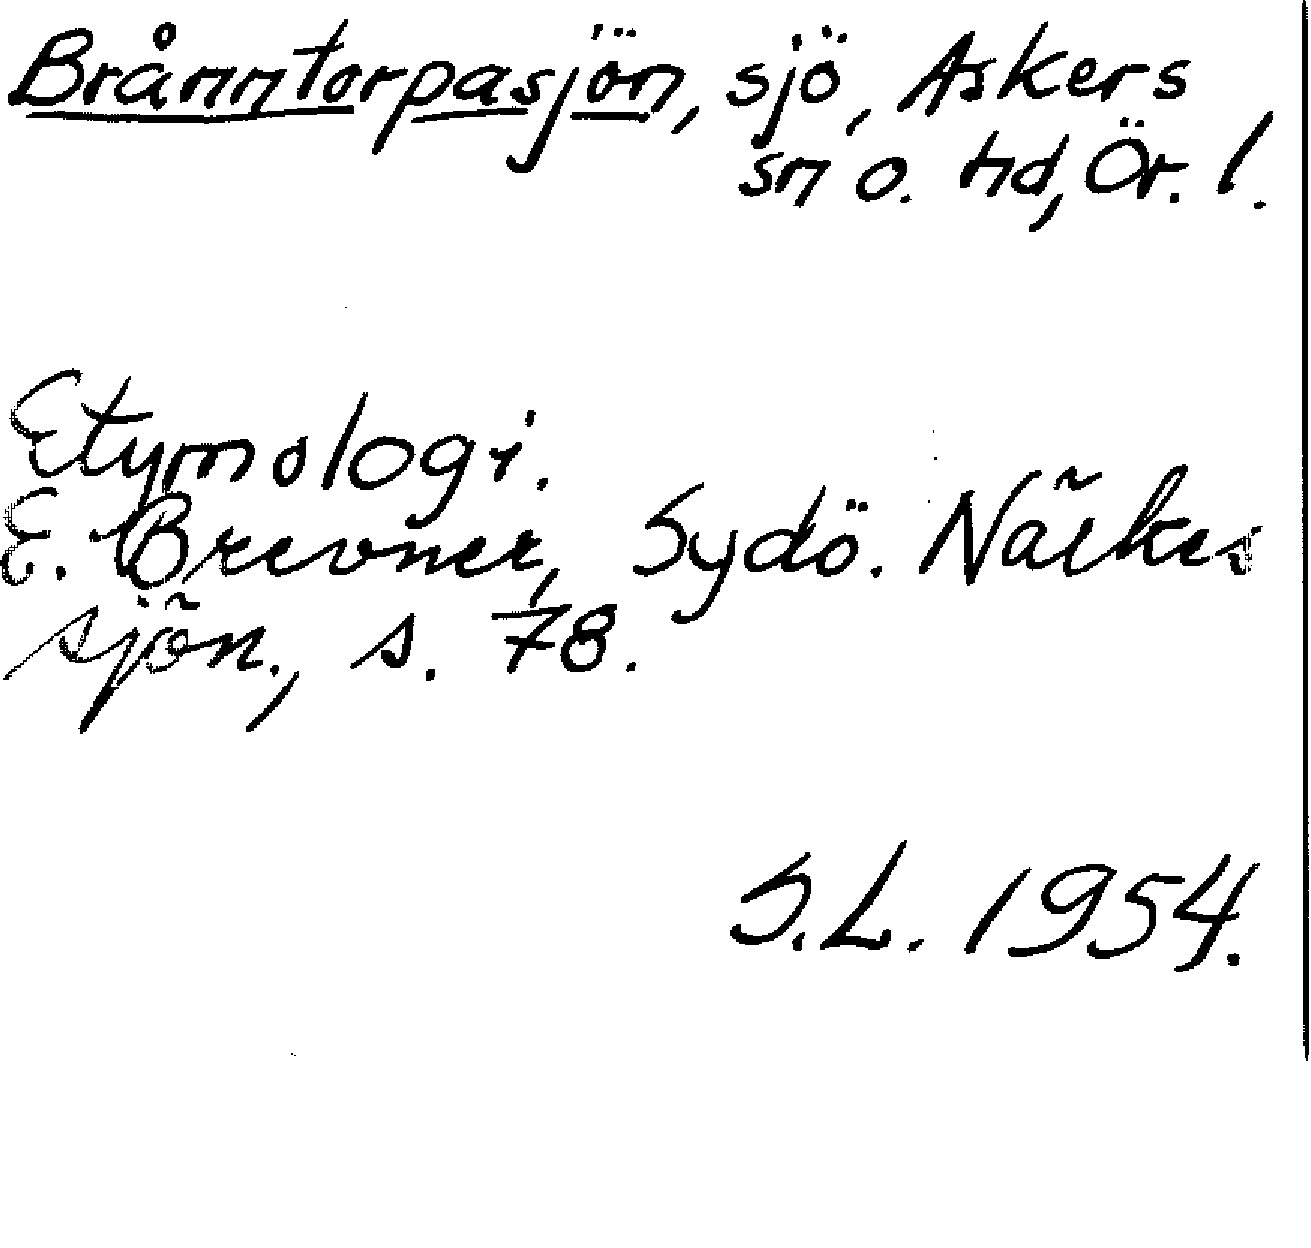 Brånntorpasjön, sjö, Askers
sn o. hd, Ör. l.
Etymologi.
E. Brevner, Sydö. Närkes
sjön., s. 78.
S.L. 1954.